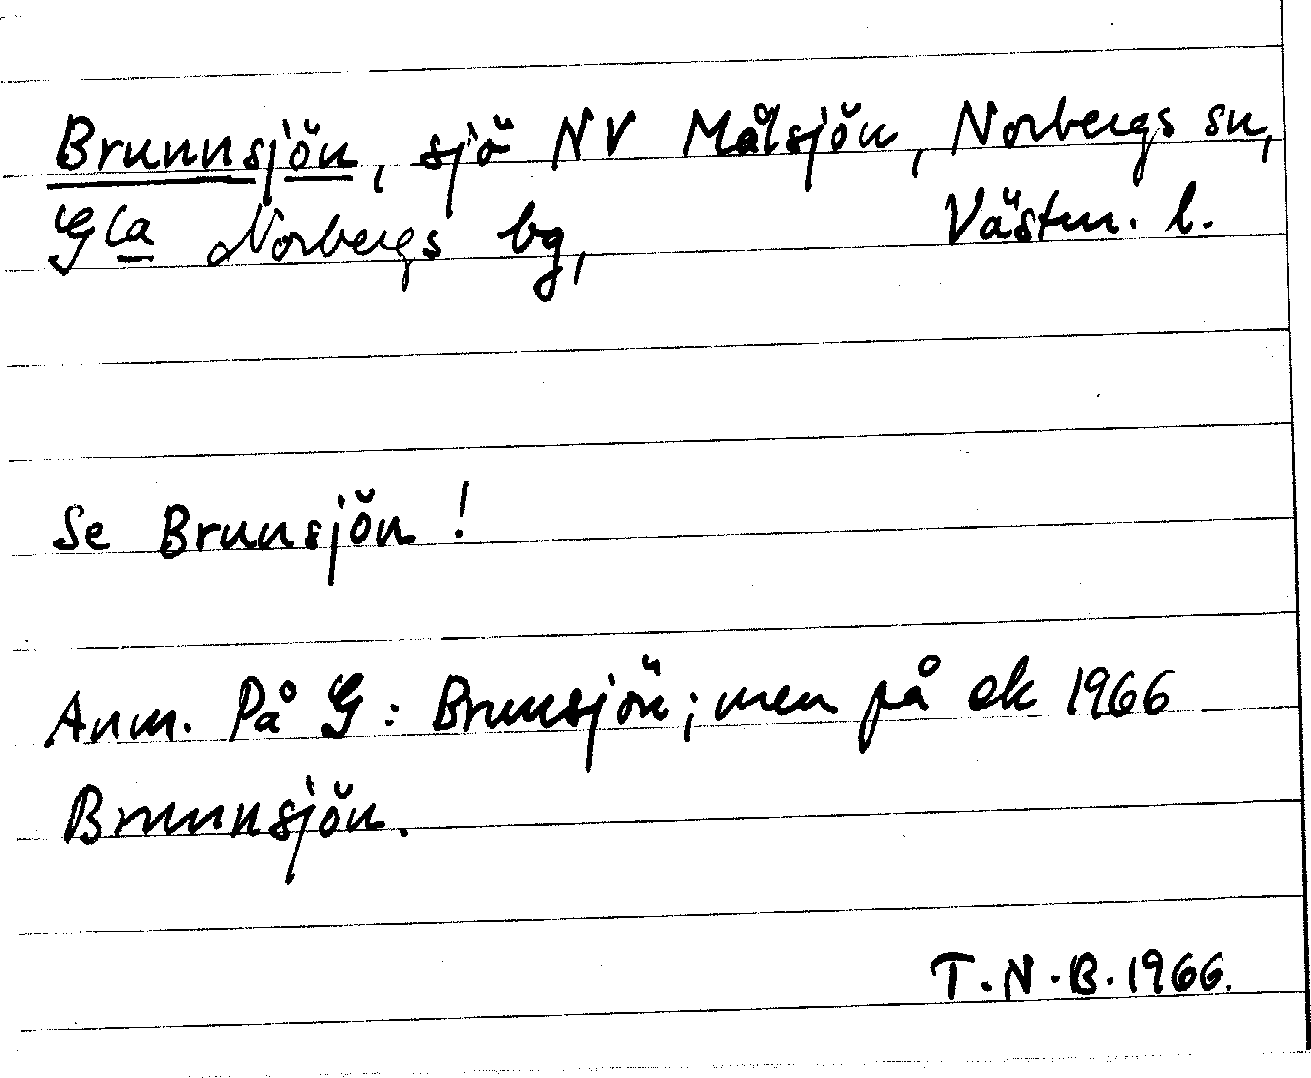 Brunnsjön, sjö NV Målsjön, Norbergs sn,
Gla Norbergs bg, Västm. l.
Se Brunsjön!
Anm. På G: Brunsjön; men på ek 1966
Brunnsjön.
T.N.B. 1966.